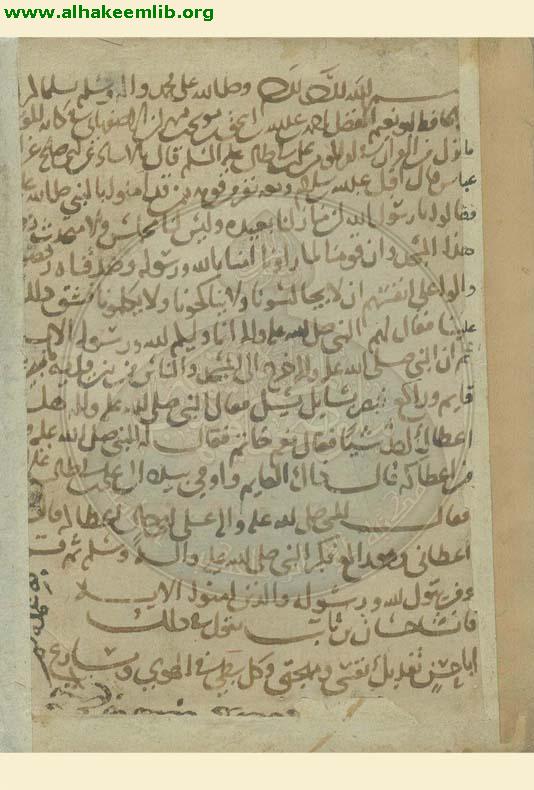 www.alhakeemlib.org
بسم الله
الحافظ ابو نعيم الفضل احمد بن عبدالله بن اسحق
ما نزل من القران في علي بن ابي طالب عليه السلم قال
عباس قال اقبل عبدالله بن سلام ومعه نفر من قومه ممن قد امنوا بالنبي صلى الله
فقالوا يا رسول الله ان منازلنا بعيده وليس لنا مجلس ولا متحدث دون
هذا المجلس وان قومنا لما راونا امنا بالله ورسوله وصدقناه رفضونا
والوا على انفسهم ان لا يجالسونا ولا يناكحونا ولا يكلمونا فشق ذلك
علينا فقال لهم النبي صلى الله عليه واله انما وليكم الله ورسوله الايه
ثم ان النبي صلى الله عليه واله خرج الى المسجد والناس بين
قايم وراكع فبصر بسايل يسيل فقال النبي صلى الله عليه واله هل
اعطاك احد شيئا فقال نعم خاتم فقال له النبي صلى الله عليه
من اعطاكه قال ذاك القايم واومى بيده الى علي بن ابي طالب
فقال النبي صلى الله عليه واله على اي حال اعطاك قال
اعطاني وهو راكع فكبر النبي صلى الله عليه واله وسلم ثم قرا
ومن يتول الله ورسوله والذين امنوا الايه
فانشا حسان بن ثابت يقول في ذلك
ابا حسن تفديك نفسي ومهجتي وكل بطي في الهوى ومسارع